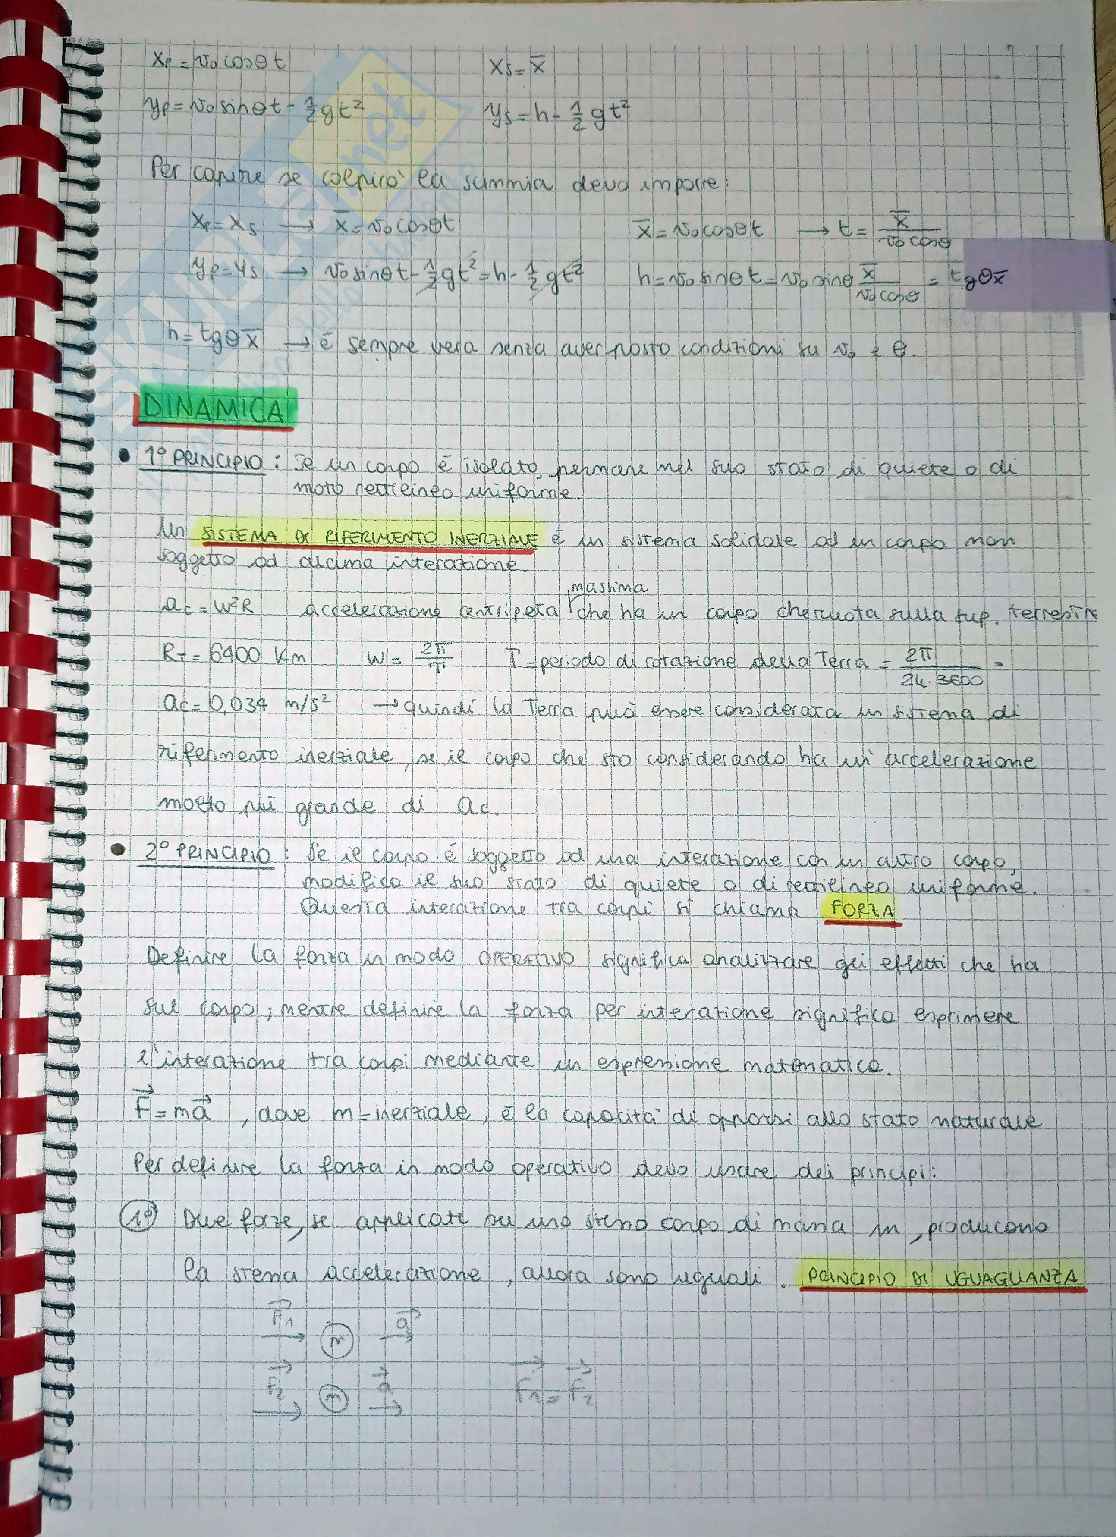 xp = v₀cosθt    xs = x̄
yp = v₀sinθt - 1/2 gt²    ys = h - 1/2 gt²
Per capire se colpirò la scimmia devo imporre:
xp = xs → x̄ = v₀cosθt    x̄ = v₀cosθt → t = x̄/v₀cosθ
yp = ys → v₀sinθt - 1/2 gt² = h - 1/2 gt²    h = v₀sinθt = v₀sinθ x̄/v₀cosθ = tgθx̄
h = tgθx̄ → è sempre vera senza aver posto condizioni su v₀ e θ.
DINAMICA
• 1° PRINCIPIO: Se un corpo è isolato, permane nel suo stato di quiete o di
moto rettilineo uniforme.
Un SISTEMA DI RIFERIMENTO INERZIALE è un sistema solidale ad un corpo non
soggetto ad alcuna interazione.
massima
ac = W²R accelerazione centripeta che ha un corpo che ruota sulla sup. terrestre
RT = 6400 Km    W = 2π/T    T = periodo di rotazione della Terra = 2π/24·3600 =
ac = 0,034 m/s² → quindi la Terra può essere considerata un sistema di
riferimento inerziale, se il corpo che sto considerando ha un'accelerazione
molto più grande di ac.
• 2° PRINCIPIO: Se il corpo è soggetto ad una interazione con un altro corpo,
modifica il suo stato di quiete o di rettilineo uniforme.
Questa interazione tra corpi si chiama FORZA
Definire la forza in modo OPERATIVO significa analizzare gli effetti che ha
sul corpo; mentre definire la forza per interazione significa esprimere
l'interazione tra corpi mediante un espressione matematica.
F⃗ = ma⃗, dove m-inerziale, è la capacità di opporsi allo stato naturale
Per definire la forza in modo operativo devo usare dei principi:
1° Due forze, se applicate su uno stesso corpo di massa m, producono
la stessa accelerazione, allora sono uguali. PRINCIPIO DI UGUAGLIANZA
F⃗₁ m a⃗
F⃗₂ m a⃗    F⃗₁ = F⃗₂